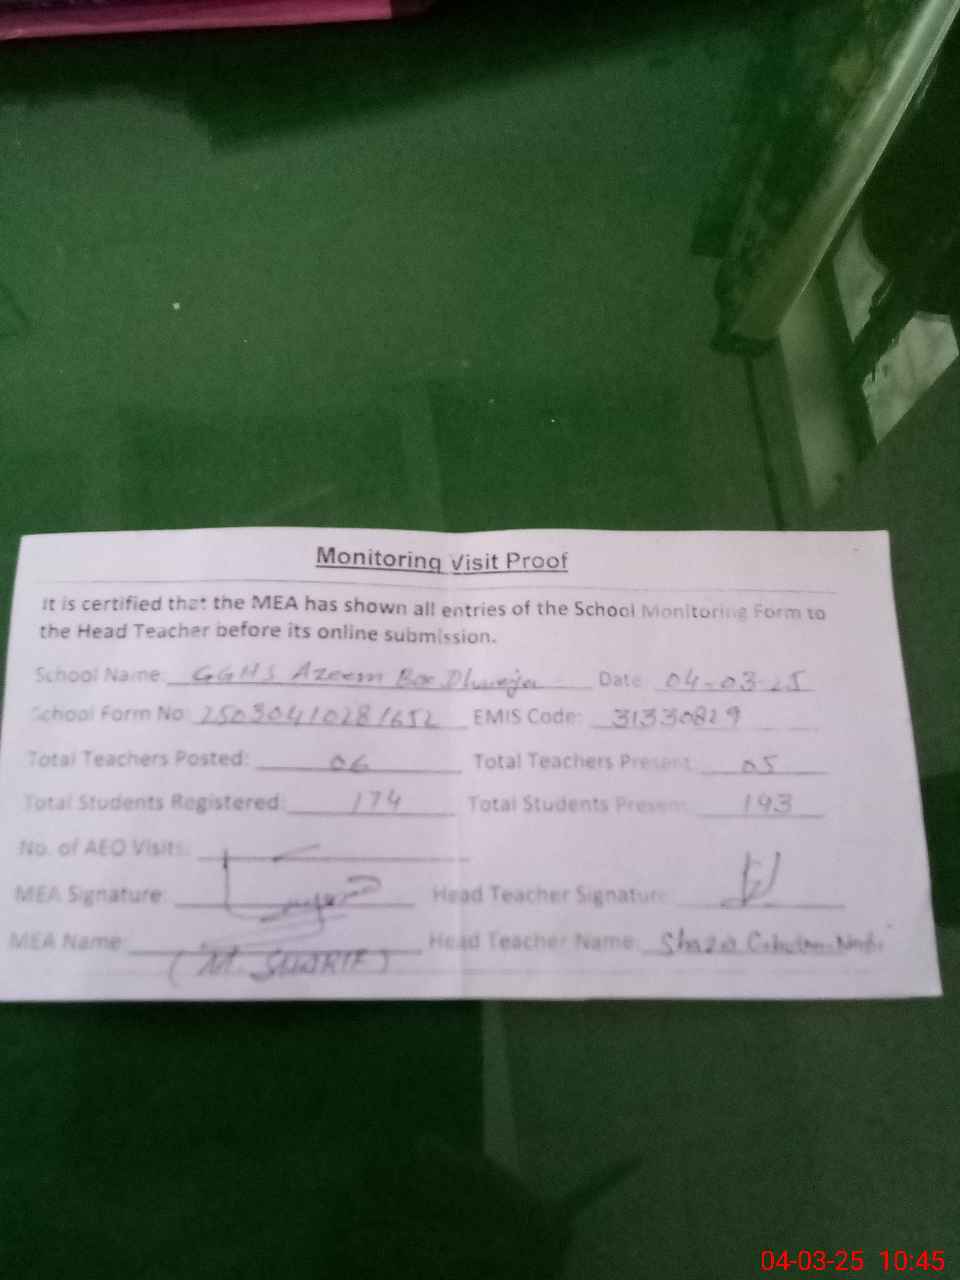 Monitoring Visit Proof
It is certified that the MEA has shown all entries of the School Monitoring Form to
the Head Teacher before its online submission.
School Name: GGHS Azeem Date: 04-03-25
School Form No: 25030410281652 EMIS Code: 31330829
Total Teachers Posted: 06 Total Teachers Present: 05
Total Students Registered: 174 Total Students Present: 193
No. of AEO Visits:
MEA Signature: Head Teacher Signature:
MEA Name: Head Teacher Name: Shazia
(M. SHARIF)
04-03-25 10:45